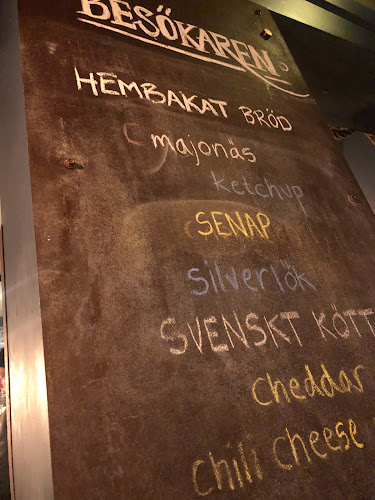 BESÖKAREN
HEMBAKAT BRÖD
majonäs
ketchup
SENAP
silverlök
SVENSKT KÖTT
cheddar
chili cheese